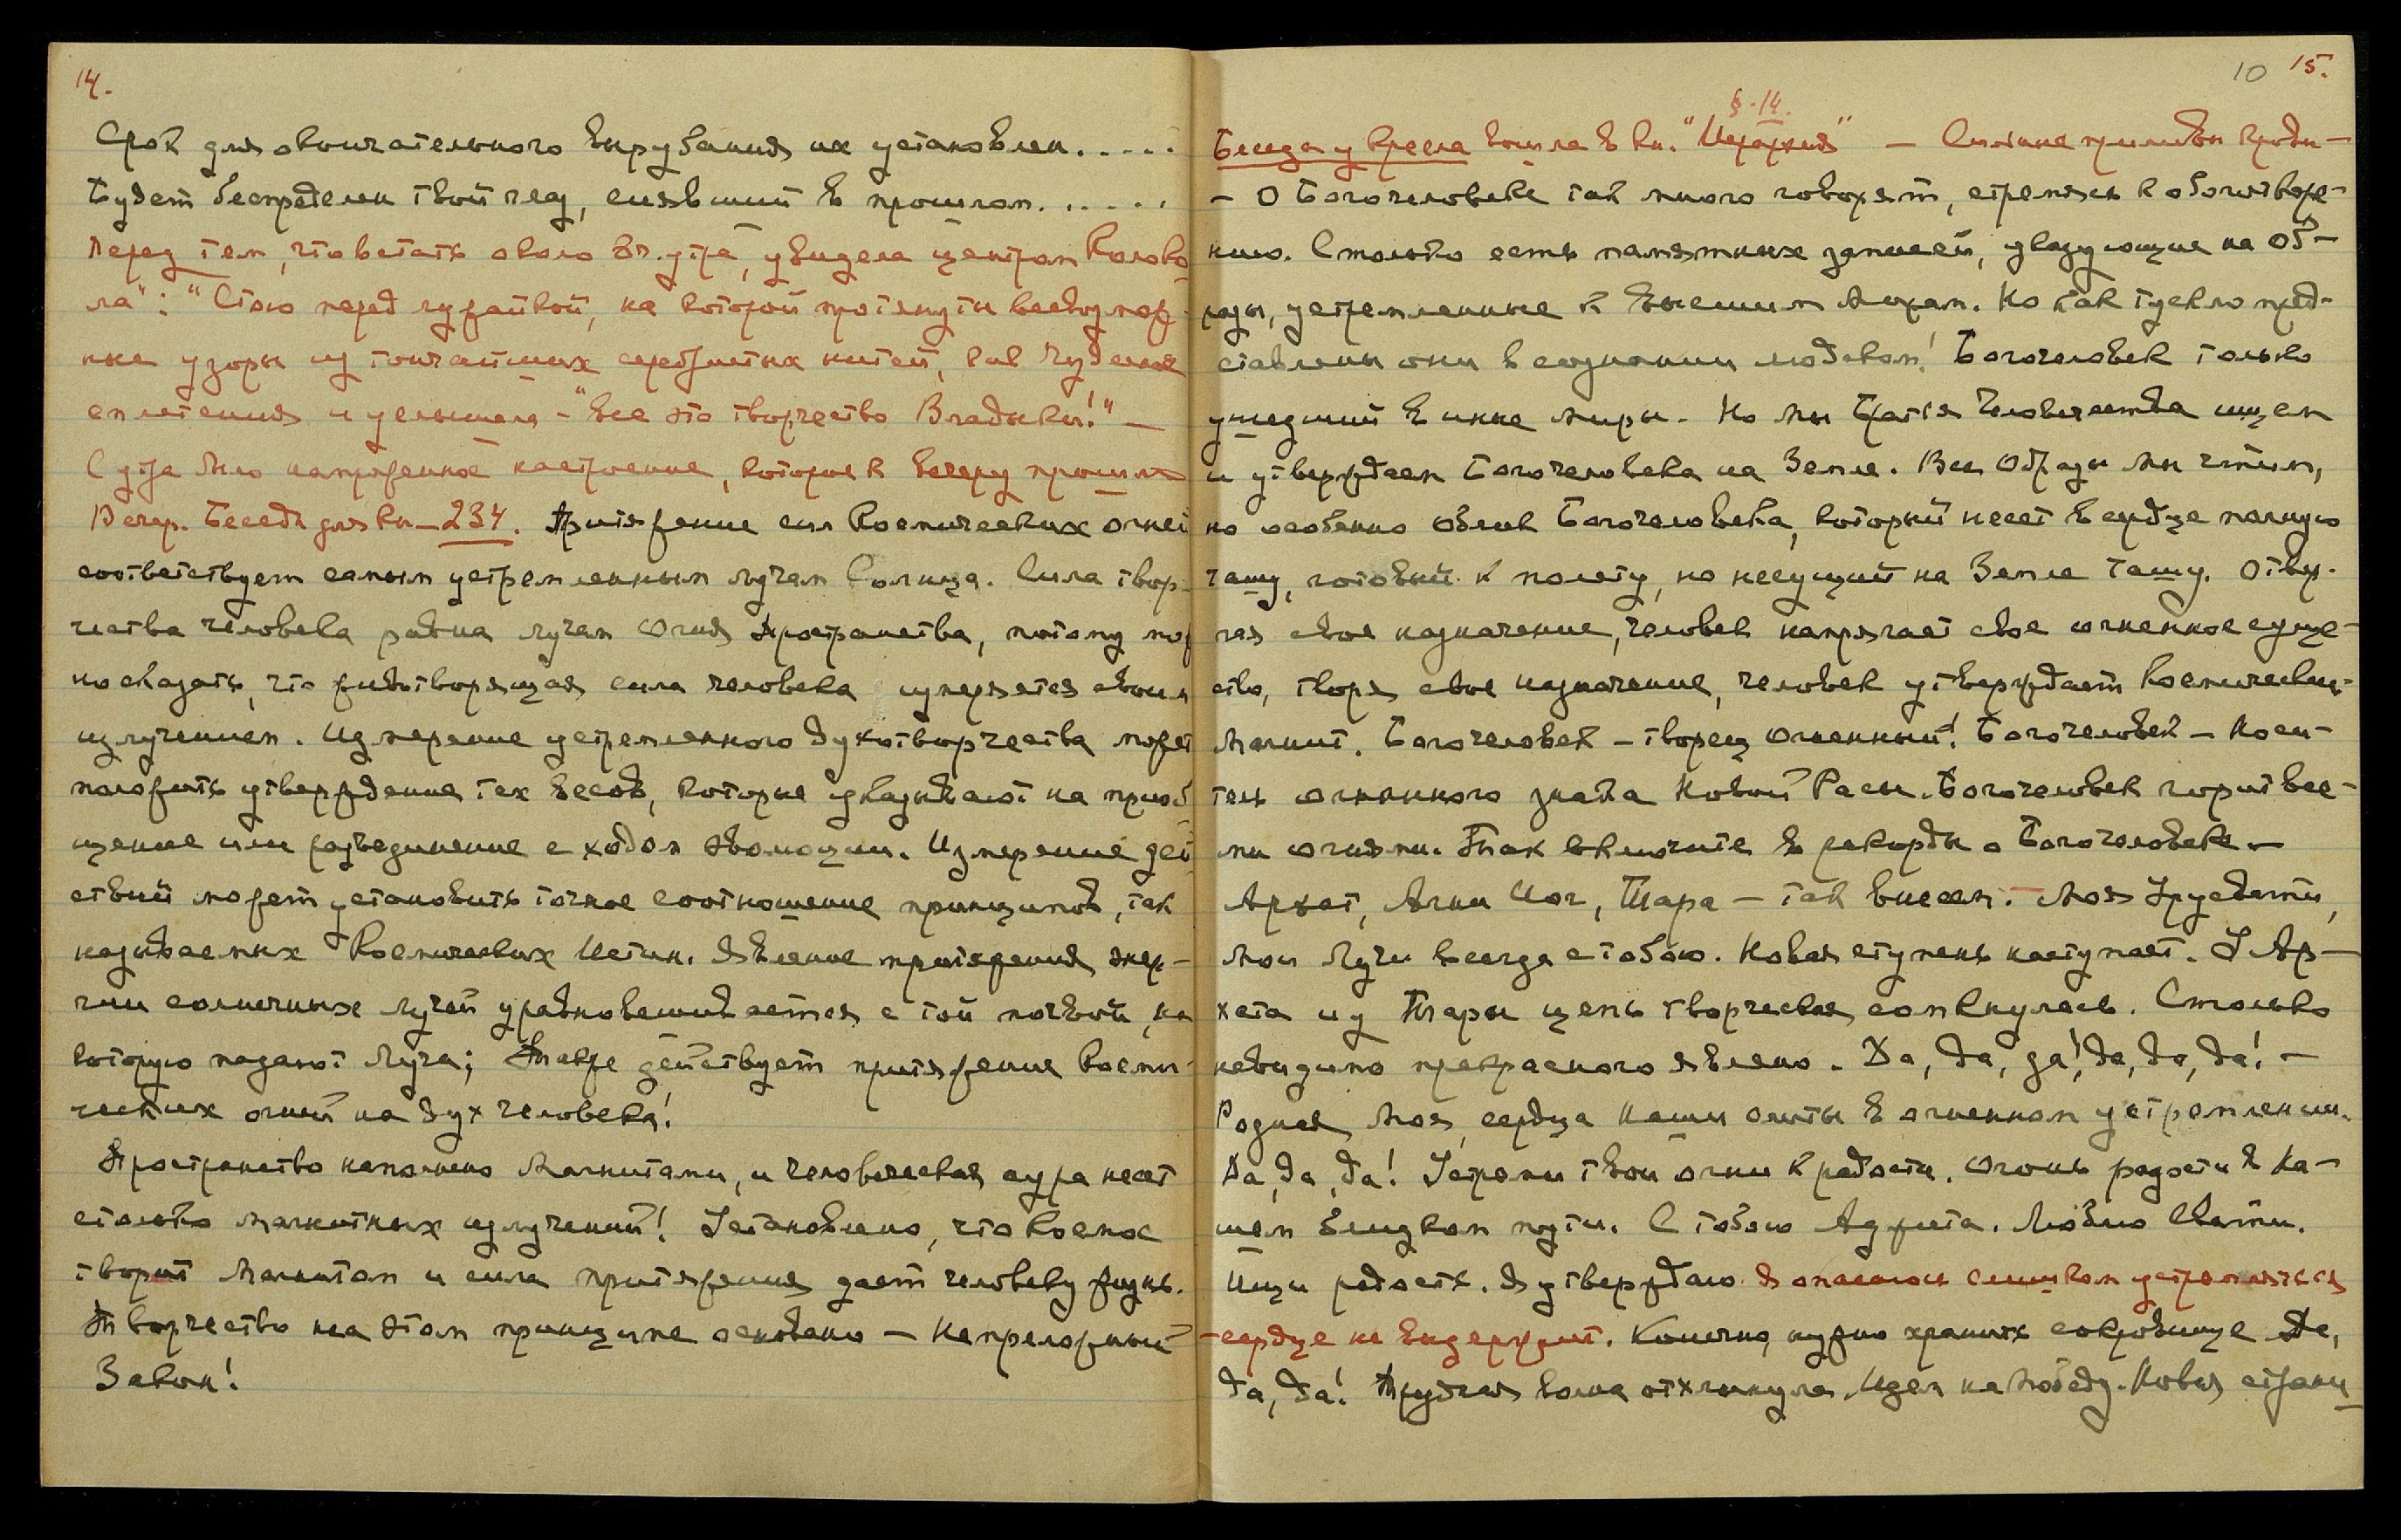 14.
Срок для окончательного вырубания их установлен.....
Будет беспределен твой час, сиявший в прошлом.....
Перед тем, что встать около 8ч. утра, увидела центром Колоко
ла": "Стою перед лужайкой, на которой протянуты всевозмож-
ные узоры из тончайших серебристых нитей, как чудесные
сплетения и услышала - "Все это творчество Владыки!" —
С утра было напряженное настроение, которое к вечеру прошло
Вечер. Беседа для кн — 234. Притяжение сил Космических огней
соответствует самым устремленным лучам Солнца. Сила твор-
чества человека равна лучам Огня Пространства, потому мож
но сказать, что животворящая сила человека измеряется своим
излучением. Измерение устремленного духотворчества может
положить утверждение тех весов, которые указывают на приоб
щение или разъединение с ходом эволюции. Измерение дей
ствий может установить точное соотношение принципов, так
называемых Космических Истин. Явление притяжения энер-
гии солнечных лучей уравновешивается с той почвой, на
которую падают Лучи; Также действует притяжение Косми-
ческих огней на дух человека!
Пространство наполнено Магнитами, и человеческая аура несет
столько магнитных излучений! Установлено, что космос
творит Магнитом и сила притяжения дает человеку жизнь.
Творчество на этом принципе основано — Непреложный
Закон!
10 15.
§.14.
Беседа у кресла вошла в кн. "Иерархия" — Сильные приливы крови —
- О Богочеловеке так много говорят, стремясь к обоготворе-
нию. Столько есть памятных записей, указующие на Об-
разы, устремленные к Высшим Мирам. Но как тускло пред-
ставлены они в сознании людском! Богочеловек только
ушедший в иные миры. Но мы Братья Человечества ищем
и утверждаем Богочеловека на Земле. Все Образы мы чтим,
но особенно облик Богочеловека, который несет в сердце полную
чашу, готовый к полету, но несущий на Земле чашу. Отвер-
гая свое назначение, человек напрягает свое огненное суще-
ство, творя свое назначение, человек утверждает Космически-
Магнит. Богочеловек — творец Огненный! Богочеловек — Носи-
тель огненного знака Новой Расы. Богочеловек горит все-
ми огнями. Так включите в рекорды о Богочеловеке —
Архат, Агни Йог, Тара — так внесем. — Моя Урусвати,
Мои Лучи всегда с тобою. Новая ступень наступает. У Ар-
хата и у Тары цепь творческая сомкнулась. Столько
невидимо прекрасного явлено. Да, да, да! Да, да, да! —
Родная Моя, сердца наши слиты в огненном устремлении.
Да, да, да! Устреми твои огни к радости. Огонь радости в На-
шем близком пути. С тобою Адрита. Люблю Свати.
Ищи радость. Я утверждаю. Я опасаюсь слишком устремляться
— сердце не выдержит. Конечно, нужно хранить сокровище. Да,
да, да! Трудная волна отхлынула. Идем на победу. Новая страни